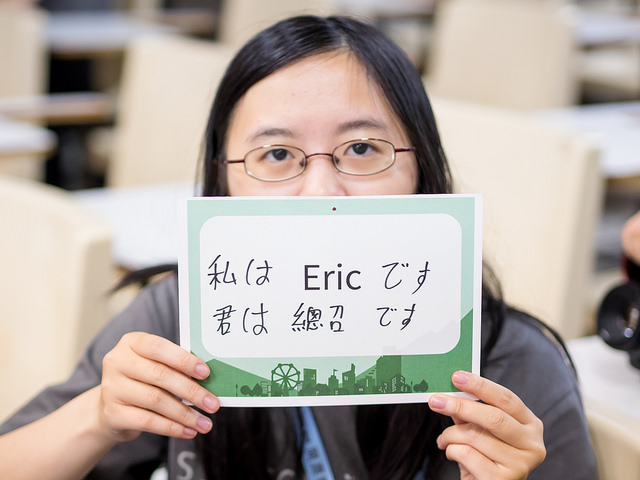 私は Eric です
君は 總召 です